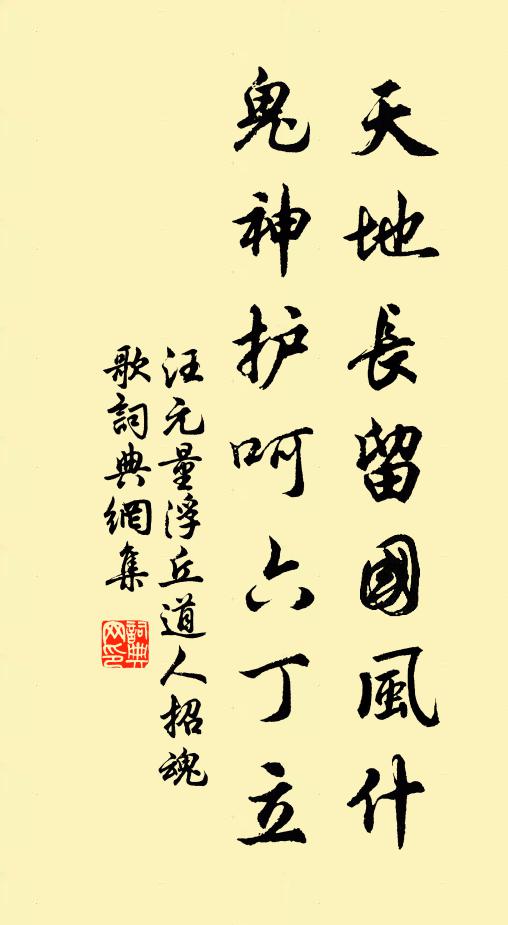 天地長留國風什
鬼神护呵六丁立
汪元量浮丘道人招魂
歌詞典網集
詞典
网印